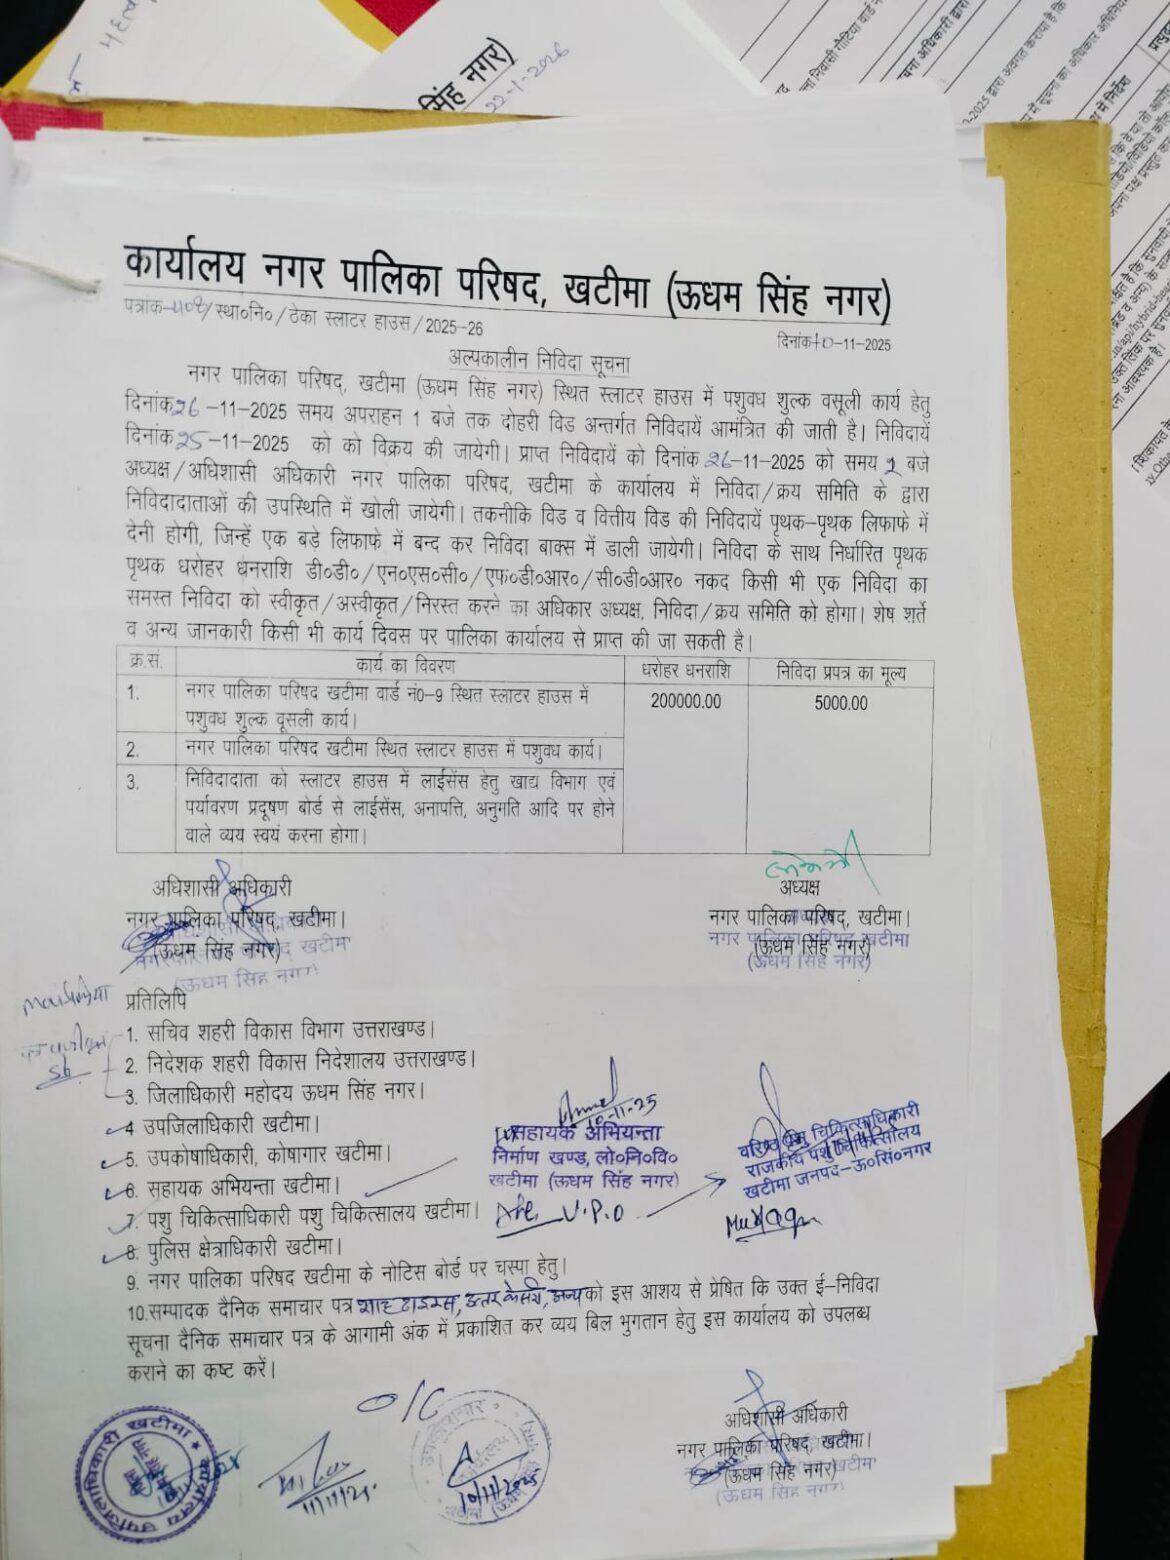 सिंह नगर)
22-1-2026
कार्यालय नगर पालिका परिषद, खटीमा (ऊधम सिंह नगर)
पत्रांक- /स्था०नि०/ठेका स्लाटर हाउस/2025-26
दिनांक 10-11-2025
अल्पकालीन निविदा सूचना
नगर पालिका परिषद, खटीमा (ऊधम सिंह नगर) स्थित स्लाटर हाउस में पशुवध शुल्क वसूली कार्य हेतु
दिनांक 26-11-2025 समय अपराहन 1 बजे तक दोहरी विड अन्तर्गत निविदायें आमंत्रित की जाती है। निविदायें
दिनांक 25-11-2025 को को विक्रय की जायेगी। प्राप्त निविदायें को दिनांक 26-11-2025 को समय 2 बजे
अध्यक्ष/अधिशासी अधिकारी नगर पालिका परिषद, खटीमा के कार्यालय में निविदा/क्रय समिति के द्वारा
निविदादाताओं की उपस्थिति में खोली जायेगी। तकनीकि विड व वित्तीय विड की निविदायें पृथक-पृथक लिफाफे में
देनी होगी, जिन्हें एक बड़े लिफाफे में बन्द कर निविदा बाक्स में डाली जायेगी। निविदा के साथ निर्धारित पृथक
पृथक धरोहर धनराशि डी०डी०/एन०एस०सी०/एफ०डी०आर०/सी०डी०आर० नकद किसी भी एक निविदा का
समस्त निविदा को स्वीकृत/अस्वीकृत/निरस्त करने का अधिकार अध्यक्ष, निविदा/क्रय समिति को होगा। शेष शर्ते
व अन्य जानकारी किसी भी कार्य दिवस पर पालिका कार्यालय से प्राप्त की जा सकती है।
क्र.सं. कार्य का विवरण धरोहर धनराशि निविदा प्रपत्र का मूल्य
1. नगर पालिका परिषद खटीमा वार्ड नं0-9 स्थित स्लाटर हाउस में 200000.00 5000.00
पशुवध शुल्क वूसली कार्य।
2. नगर पालिका परिषद खटीमा स्थित स्लाटर हाउस में पशुवध कार्य।
3. निविदादाता को स्लाटर हाउस में लाईसेंस हेतु खाद्य विभाग एवं
पर्यावरण प्रदूषण बोर्ड से लाईसेंस, अनापत्ति, अनुगति आदि पर होने
वाले व्यय स्वयं करना होगा।
अधिशासी अधिकारी
नगर पालिका परिषद, खटीमा।
(ऊधम सिंह नगर)
(ऊधम सिंह नगर)
अध्यक्ष
नगर पालिका परिषद, खटीमा।
नगर पालिका परिषद खटीमा
(ऊधम सिंह नगर)
(ऊधम सिंह नगर)
प्रतिलिपि
1. सचिव शहरी विकास विभाग उत्तराखण्ड।
2. निदेशक शहरी विकास निदेशालय उत्तराखण्ड।
3. जिलाधिकारी महोदय ऊधम सिंह नगर।
4 उपजिलाधिकारी खटीमा।
5. उपकोषाधिकारी, कोषागार खटीमा।
6. सहायक अभियन्ता खटीमा।
7. पशु चिकित्साधिकारी पशु चिकित्सालय खटीमा।
8. पुलिस क्षेत्राधिकारी खटीमा।
9. नगर पालिका परिषद खटीमा के नोटिस बोर्ड पर चस्पा हेतु।
10.सम्पादक दैनिक समाचार पत्र शाह टाइम्स, उत्तर केसरी, अन्य को इस आशय से प्रेषित कि उक्त ई-निविदा
सूचना दैनिक समाचार पत्र के आगामी अंक में प्रकाशित कर व्यय बिल भुगतान हेतु इस कार्यालय को उपलब्ध
कराने का कष्ट करें।
10-11-25
सहायक अभियन्ता
निर्माण खण्ड, लो०नि०वि०
खटीमा (ऊधम सिंह नगर)
V.P.O
वरिष्ठ पशु चिकित्साधिकारी
राजकीय पशु चिकित्सालय
खटीमा जनपद-ऊ०सिं०नगर
O/C
11/11/25
10/11/2025
कार्यालय उपजिलाधिकारी खटीमा
अधिशासी अधिकारी
नगर पालिका परिषद, खटीमा।
(ऊधम सिंह नगर)
(ऊधम सिंह नगर)